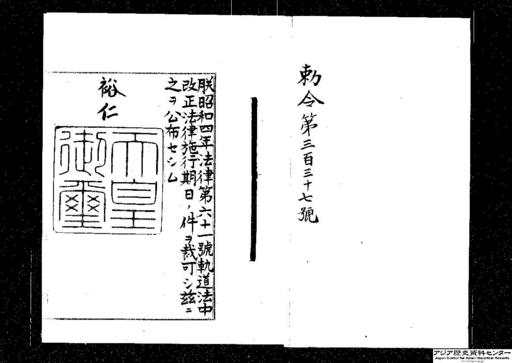 勅令第三百三十七號
朕昭和四年法律第六十一號軌道法中
改正法律施行期日ノ件ヲ裁可シ茲ニ
之ヲ公布セシム
裕仁
天皇
御璽
アジア歴史資料センター
Japan Center for Asian Historical Records